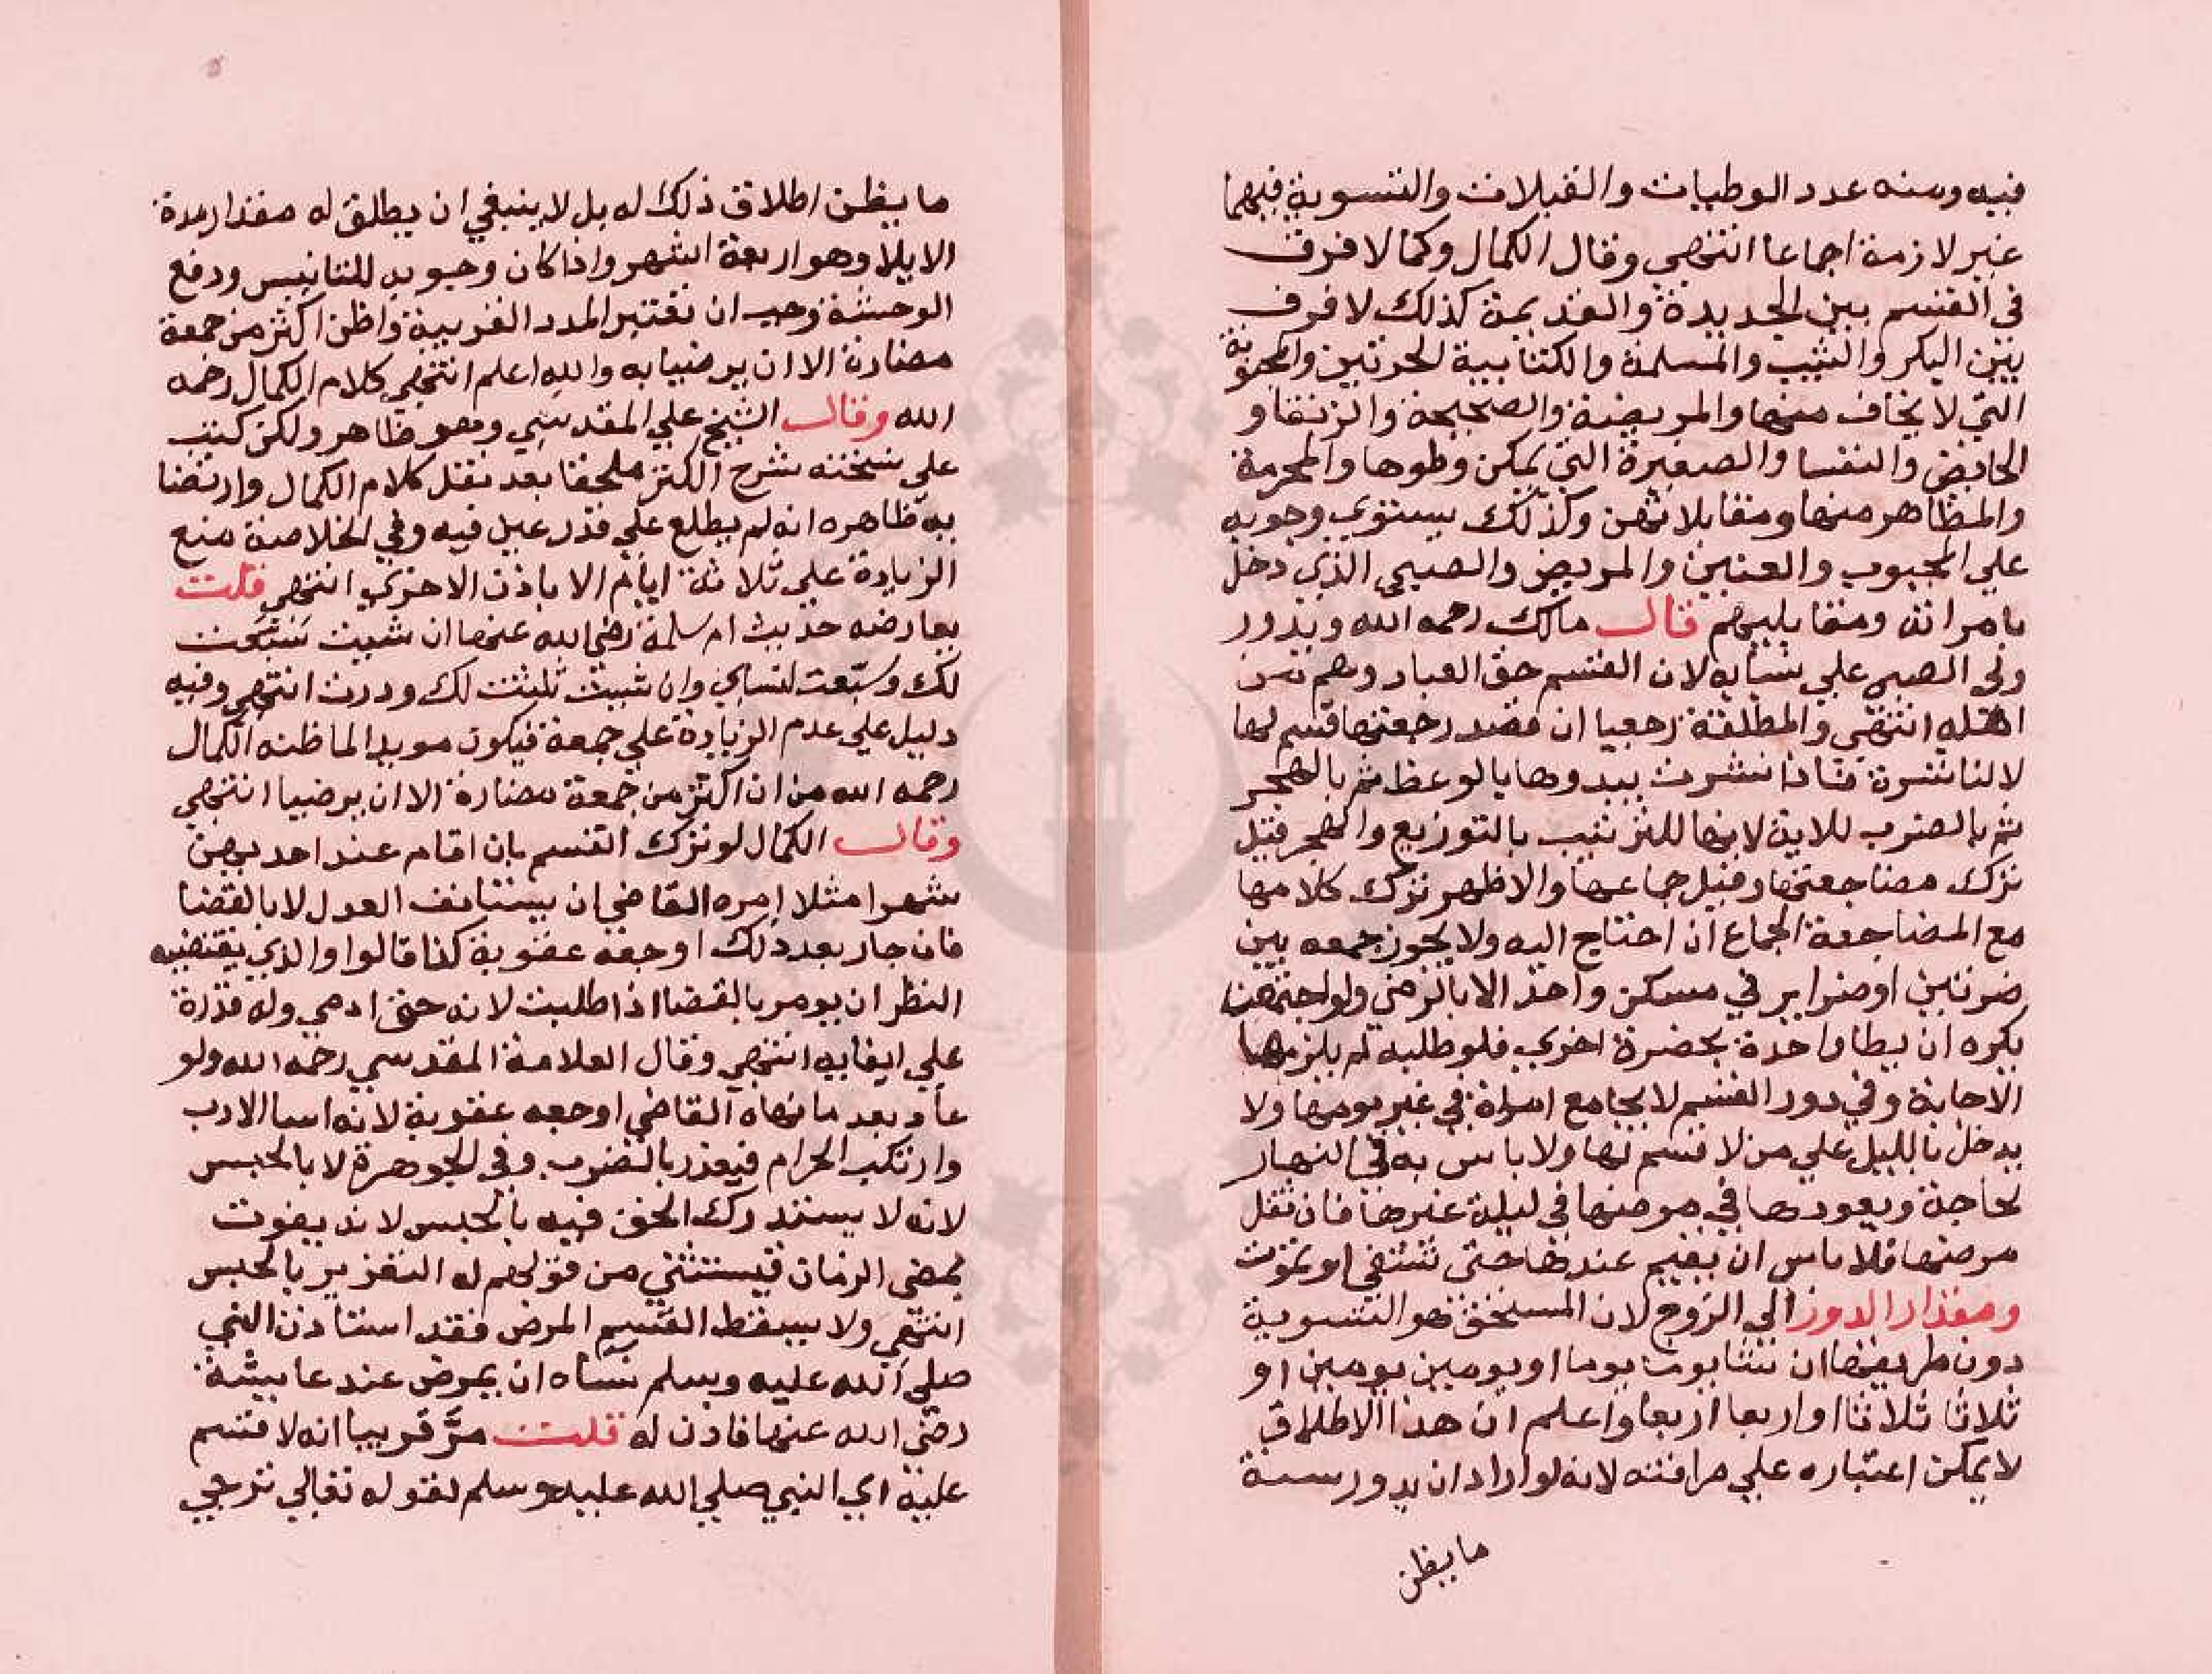 فيه وسنه عدد الوطيات والقبلات والتسوية فيهما
غير لازمة اجماعا انتهى وقال الكمال وكما لا فرق
في القسم بين الجديدة والقديمة كذلك لا فرق
بين البكر والثيب والمسلمة والكتابية الحرتين والمجنونة
التي لا يخاف منها والمريضة والصحيحة والرتقا و
الحايض والنفسا والصغيرة التي يمكن وطوها والمحرمة
والمظاهر منها ومقابلاتهن وكذلك يستوي وجوبه
علي المجبوب والعنين والمريض والصبي الذي دخل
بامراته ومقابليهم قال مالك رحمه الله ويدور
ولي الصبي علي نسايه لان القسم حق العباد وهم من
اهله انتهي والمطلقة رجعيا ان قصد رجعتها قسم لها
لا لناشزة فاذا نشزت يبدوها بالوعظ ثم بالهجر
ثم بالضرب للاية لانها للترتيب بالتوزيع والهجر قيل
ترك مضاجعتها وقيل جماعها والاظهر ترك كلامها
مع المضاجعة الجماع ان احتاج اليه ولا يجوز جمعه بين
ضرتين او ضراير في مسكن واحد الا بالرضي ولو اجتمعن
يكره ان يطا واحدة بحضرة اخري فلو طلبه لم يلزمها
الاجابة وفي دور القسم لا يجامع امراة في غير يومها ولا
يدخل بالليل علي من لا قسم لها ولا باس به في النهار
لحاجة ويعودها في مرضها في ليلة غيرها فان ثقل
مرضها فلا باس ان يقيم عندها حتي تشفي او تموت
ومقدار الدور الي الزوج لان المستحق هو التسوية
دون طريقها ان شا يوما يوما او يومين يومين او
ثلاثا ثلاثا او اربعا اربعا واعلم ان هذا الاطلاق
لا يمكن اعتباره علي مرافته لانه لو اراد ان يدور سنة
ما يظن
ما يظن اطلاق ذلك له بل لا ينبغي ان يطلق له مقدار مدة
الايلا وهو اربعة اشهر واذا كان وجوبه للتانيس ودفع
الوحشة وجب ان تعتبر المدد القريبة واظن اكثر من جمعة
مضارة الا ان يرضيا به والله اعلم انتهي كلام الكمال رحمه
الله وقال الشيخ علي المقدسي وهو ظاهر ولكن كتب
علي نسخته شرح الكنز ملحقا بعد نقل كلام الكمال وارتضا
به ظاهره انه لم يطلع علي قدر عين فيه وفي الخلاصة منع
الزيادة علي ثلاثة ايام الا باذن الاخري انتهي قلت
يعارضه حديث ام سلمة رضي الله عنها ان شيت سبعت
لك وسبعت لنساي وان شيت ثلثت لك ودرت انتهي وفيه
دليل علي عدم الزيادة علي جمعة فيكون مويدا لما ظنه الكمال
رحمه الله من ان اكثر من جمعة مضارة الا ان يرضيا انتهي
وقال الكمال لو ترك القسم بان اقام عند احديهن
شهرا مثلا امره القاضي ان يستانف العدل لا بالقضا
فان جار بعد ذلك اوجعه عقوبة كذا قالوا والذي يقتضيه
النظر ان يومر بالقضا اذا طلبت لانه حق ادمي وله قدرة
علي ايفايه انتهي وقال العلامة المقدسي رحمه الله ولو
عاد بعد ما نهاه القاضي اوجعه عقوبة لانه اسا الادب
وارتكب الحرام فيعذر بالضرب وفي الجوهرة لا بالحبس
لانه لا يستدرك الحق فيه بالحبس لانه يفوت
بمضي الزمان فيستثني من قولهم له التعزير بالحبس
انتهي ولا يسقط القسم المرض فقد استاذن النبي
صلي الله عليه وسلم نساه ان يمرض عند عايشة
رضي الله عنها فاذن له قلت مرّ قريبا انه لا قسم
عليه اي النبي صلي الله عليه وسلم لقوله تعالي ترجي